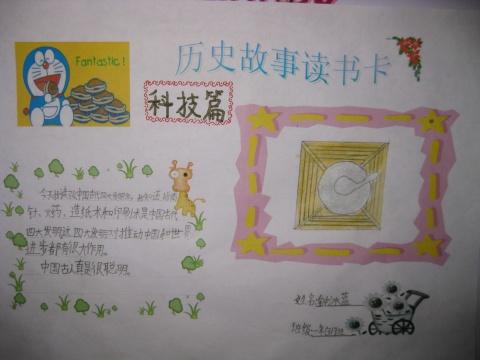 Fantastic!
历史故事读书卡
科技篇
今天我读了中国古代四大发明
针、火药，造纸术和印刷术是中国古代
四大发明。这四大发明对推动中国和世界
进步都有很大作用。
中国古人真是很聪明。
姓名
班级一年